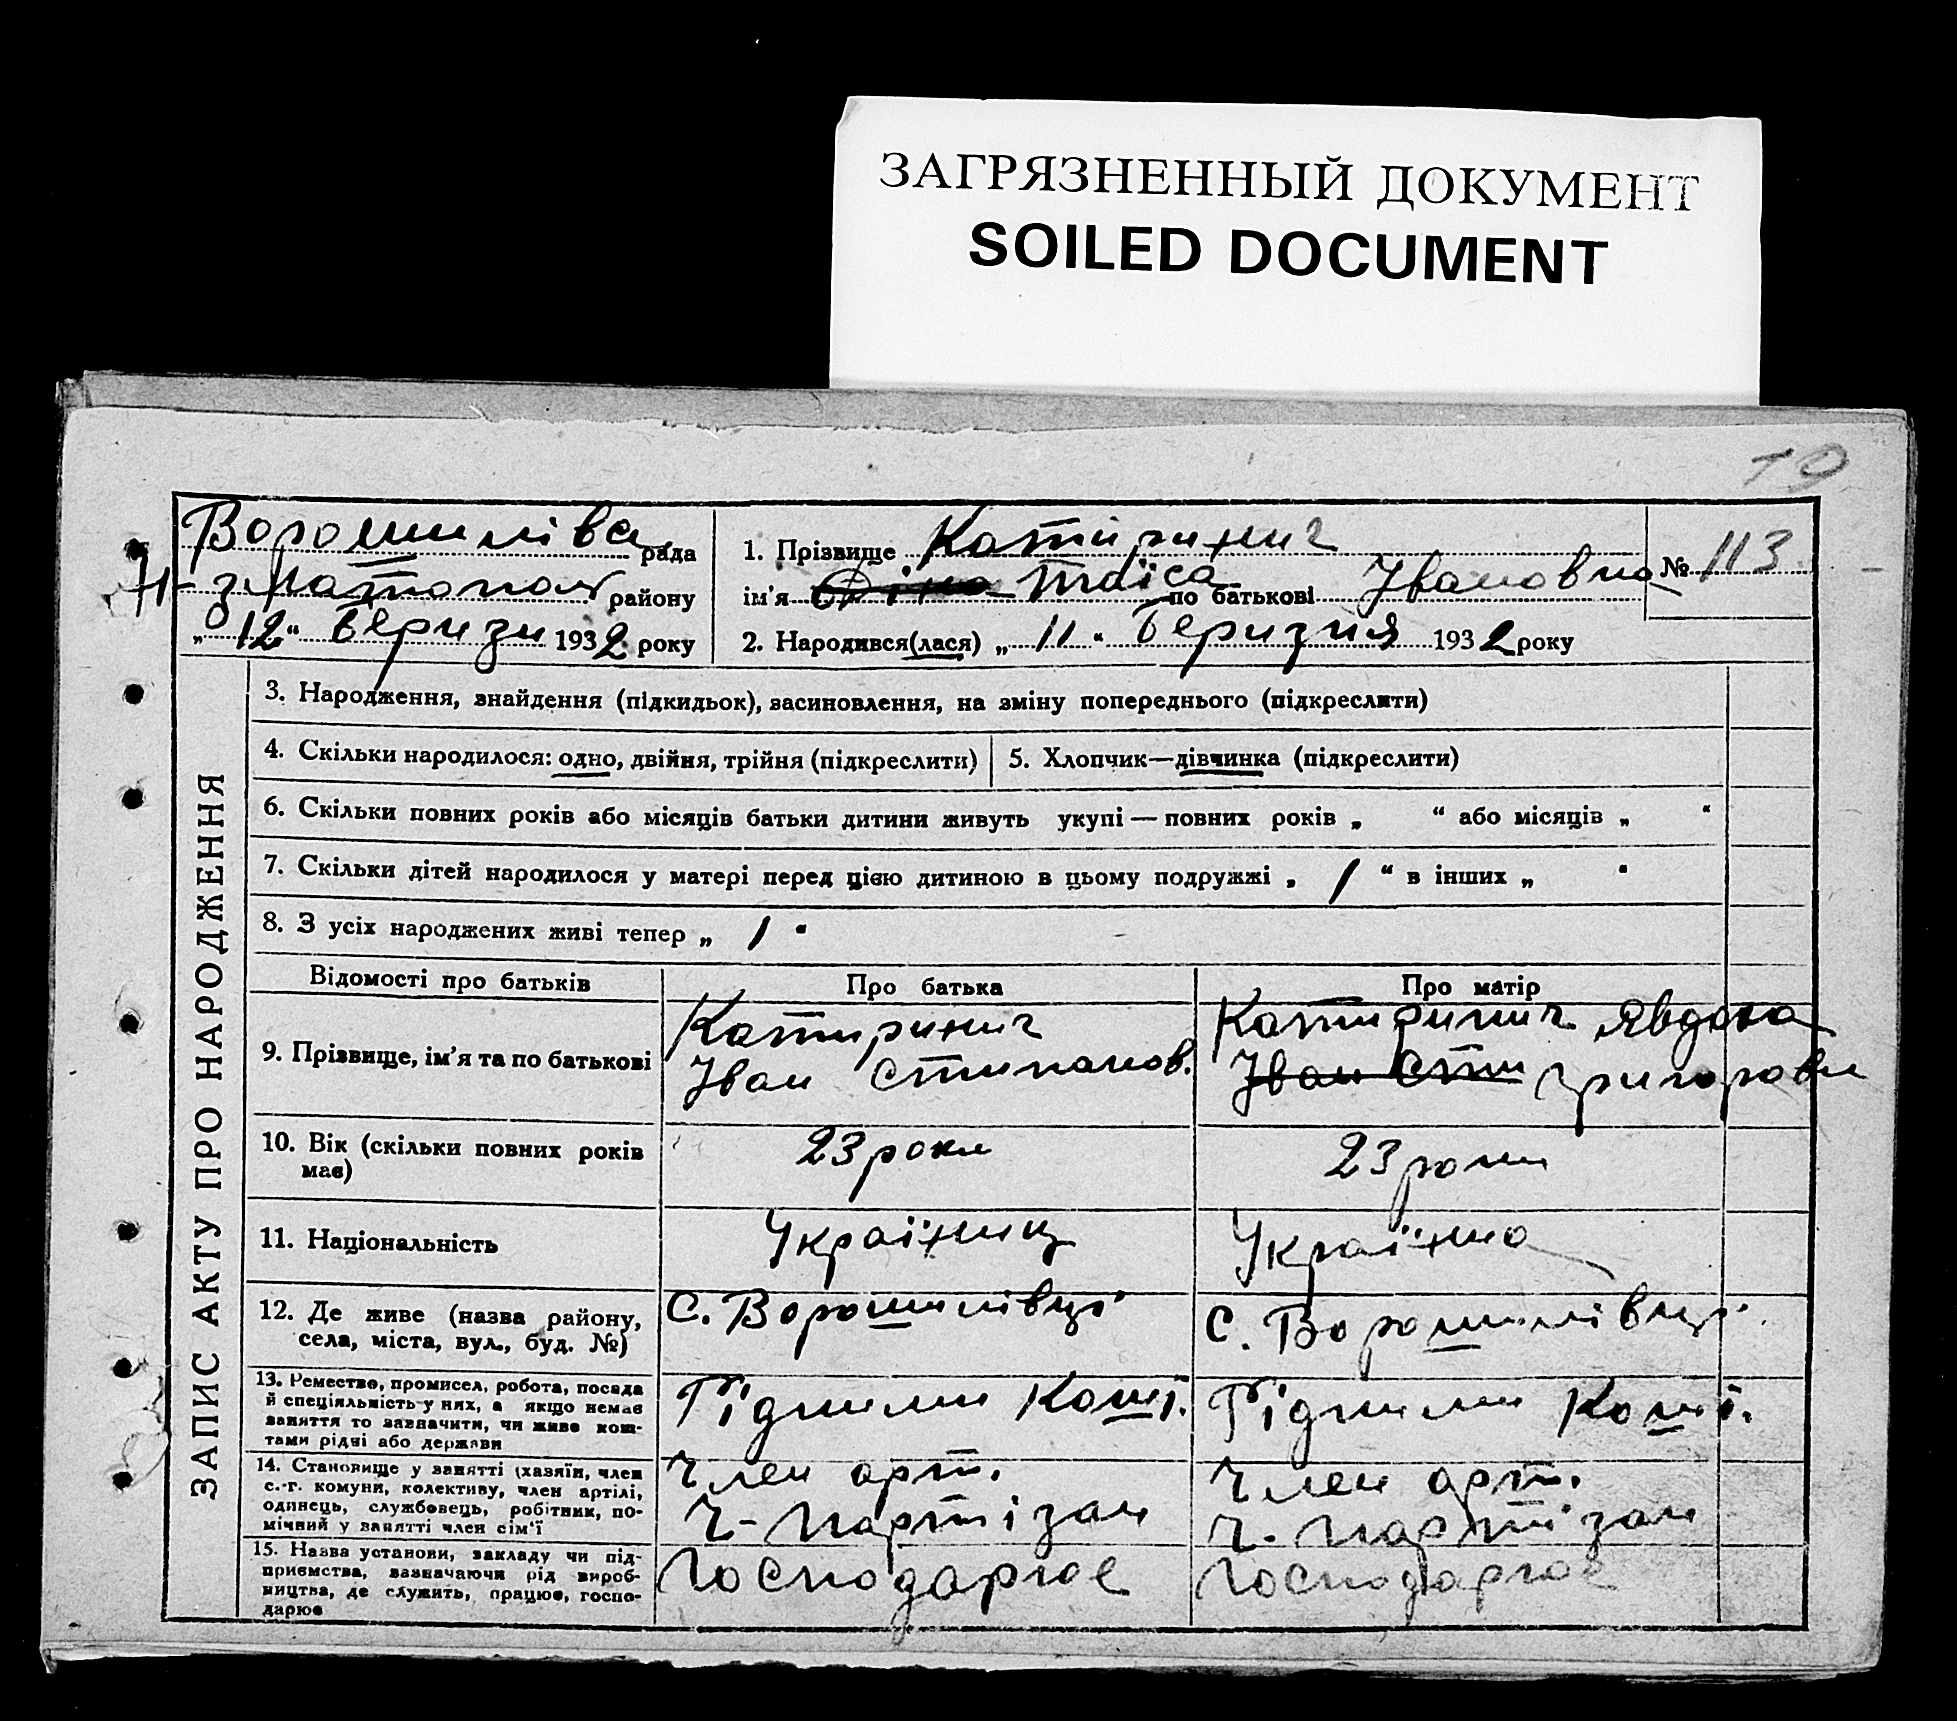 ЗАГРЯЗНЕННЫЙ ДОКУМЕНТ
SOILED DOCUMENT
19
Ворошилівс рада
району
„12“ Беризн 1932 року
1. Прізвище Катиринич
№ 113
ім'я Таїса по батькові Івановна
2. Народився(лася) „11“ Беризня 1932 року
ЗАПИС АКТУ ПРО НАРОДЖЕННЯ
3. Народження, знайдення (підкидьок), засиновлення, на зміну попереднього (підкреслити)
4. Скільки народилося: одно, двійня, трійня (підкреслити)
5. Хлопчик—дівчинка (підкреслити)
6. Скільки повних років або місяців батьки дитини живуть укупі — повних років „ “ або місяців „ “
7. Скільки дітей народилося у матері перед цією дитиною в цьому подружжі „ 1 “ в інших „ “
8. З усіх народжених живі тепер „ 1 “
Відомості про батьків
Про батька
Про матір
9. Прізвище, ім'я та по батькові
Катиринич
Іван Стипанов.
Катиринич Явдоха
Іван Сти Григоровн
10. Вік (скільки повних років
має)
23 роки
23 роки
11. Національність
Україниц
Українка
12. Де живе (назва району,
села, міста, вул., буд. №)
с. Ворошилівці
с. Ворошилівці
13. Ремество, промисел, робота, посада
й спеціяльність у них, а якщо немає
заняття то зазначити, чи живе кош-
тами рідні або держави
Рідними Кошт.
Рідними Кошт.
14. Становище у занятті (хазяїн, член
с.-г. комуни, колективу, член артілі,
одинець, службовець, робітник, по-
мічний у занятті член сім'ї
Член арт.
Ч-Партізан
Член арт.
Ч-Партізан
15. Назва установи, закладу чи під-
приємства, зазначаючи рід вироб-
ництва, де служить, працює, госпо-
дарює
Господарює
Господарює